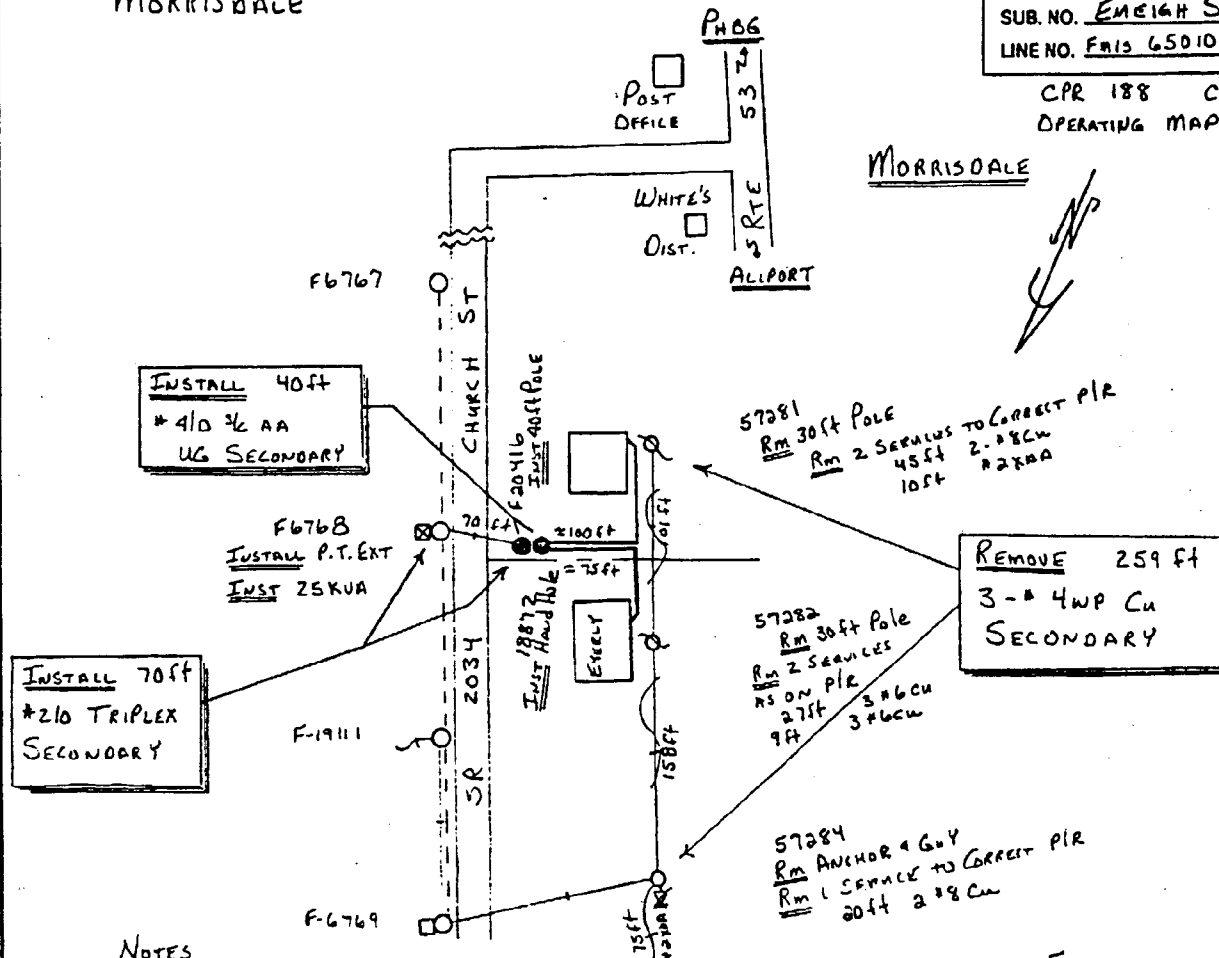 MORRISDALE
SUB. NO. EMEIGH S
LINE NO. FMIS 65010
CPR 188 C
OPERATING MAP
PHBG
POST
OFFICE
RTE 53
MORRISDALE
WHITE'S
DIST.
ALLPORT
F6767
CHURCH ST
INSTALL 40ft
#4/0 3/C AA
UG SECONDARY
F20416
INST 40ft POLE
57281
Rm 30ft POLE
Rm 2 SERVICES TO CORRECT P/R
45ft 2-#8Cu
10ft #2XAA
F6768
INSTALL P.T. EXT
INST 25KVA
70 ft
≈100ft
=75ft
101ft
18872
INST Hand Hole
EVERLY
REMOVE 259 ft
3-#4WP Cu
SECONDARY
57282
Rm 30ft Pole
Rm 2 SERVICES
AS ON P/R
27ft 3#6CU
9ft 3#6CU
INSTALL 70ft
#2/0 TRIPLEX
SECONDARY
F-19111
SR 2034
158ft
57284
Rm ANCHOR & GUY
Rm 1 SERVICE TO CORRECT P/R
20ft 2#8 Cu
F-6769
75ft
NOTES